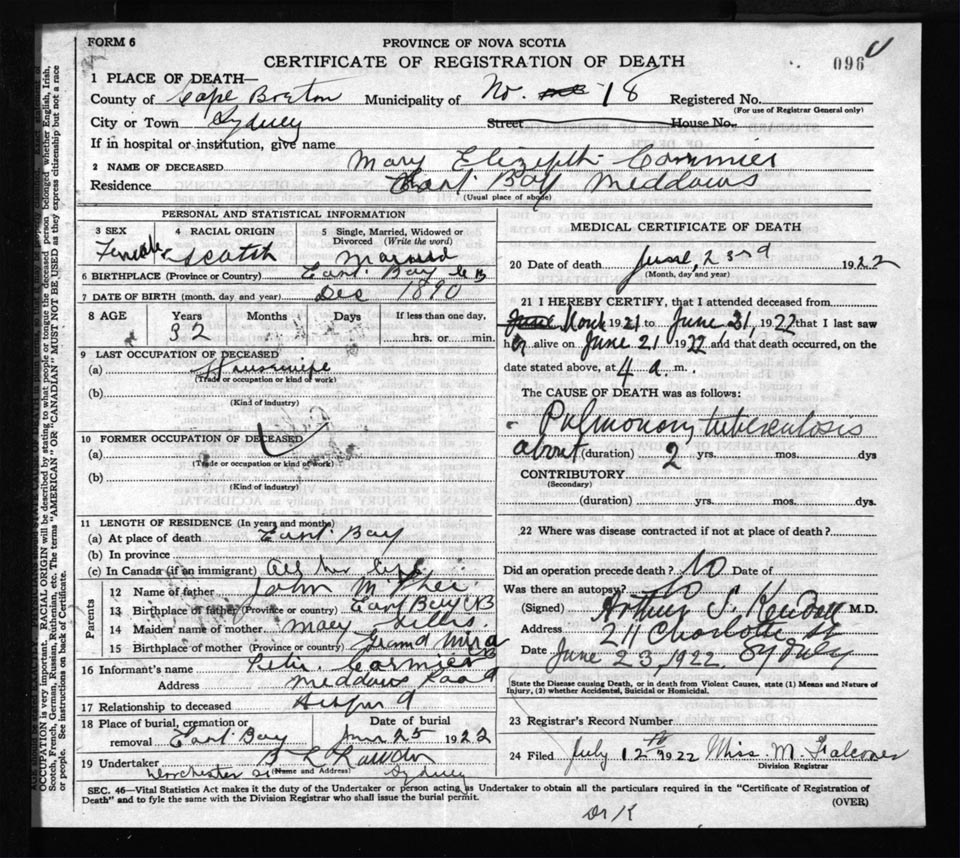 FORM 6
PROVINCE OF NOVA SCOTIA
CERTIFICATE OF REGISTRATION OF DEATH
096
1 PLACE OF DEATH—
County of Cape Breton Municipality of No. 18 Registered No.
(For use of Registrar General only)
City or Town Sydney Street House No.
If in hospital or institution, give name
2 NAME OF DECEASED Mary Elizebeth Cormier
Residence East Bay Meddows
(Usual place of abode)
PERSONAL AND STATISTICAL INFORMATION
3 SEX 4 RACIAL ORIGIN 5 Single, Married, Widowed or Divorced (Write the word)
Female Scotch Married
6 BIRTHPLACE (Province or Country) East Bay CB
7 DATE OF BIRTH (month, day and year) Dec 1890
8 AGE Years Months Days If less than one day,
32 hrs. or min.
9 LAST OCCUPATION OF DECEASED
(a) Housewife
(Trade or occupation or kind of work)
(b)
(Kind of industry)
10 FORMER OCCUPATION OF DECEASED
(a)
(Trade or occupation or kind of work)
(b)
(Kind of industry)
11 LENGTH OF RESIDENCE (In years and months)
(a) At place of death East Bay
(b) In province
(c) In Canada (if an immigrant) All her life
Parents
12 Name of father John
13 Birthplace of father (Province or country) East Bay CB
14 Maiden name of mother Mary Gillis
15 Birthplace of mother (Province or country) Grand Mira CB
16 Informant's name Peter Cormier
Address Meddows Road
17 Relationship to deceased
18 Place of burial, cremation or removal East Bay Date of burial Jun 25 1922
19 Undertaker
(Name and Address)
Dorchester St Sydney
MEDICAL CERTIFICATE OF DEATH
20 Date of death June, 23rd 1922
(Month, day and year)
21 I HEREBY CERTIFY, that I attended deceased from
1921 to June 21, 1922 that I last saw
her alive on June 21 1922 and that death occurred, on the
date stated above, at 4 a. m.
The CAUSE OF DEATH was as follows:
Pulmonary tuberculosis
about (duration) 2 yrs. mos. dys
CONTRIBUTORY
(Secondary)
(duration) yrs. mos. dys.
22 Where was disease contracted if not at place of death?
Did an operation precede death? No Date of
Was there an autopsy? No
(Signed) Arthur S. Kendall M.D.
Address 211 Charlotte St
Date June 23, 1922. Sydney
State the Disease causing Death, or in death from Violent Causes, state (1) Means and Nature of Injury, (2) whether Accidental, Suicidal or Homicidal.
23 Registrar's Record Number
24 Filed July 12th 1922 Miss M. Falconer
Division Registrar
SEC. 46—Vital Statistics Act makes it the duty of the Undertaker or person acting as Undertaker to obtain all the particulars required in the "Certificate of Registration of
Death" and to fyle the same with the Division Registrar who shall issue the burial permit.
(OVER)
Dr K
OCCUPATION is very important. RACIAL ORIGIN will be described by stating to what people or tongue the deceased person belonged whether English, Irish,
Scotch, French, German, Russian, Ruthenian, etc. The terms "AMERICAN" OR "CANADIAN" MUST NOT BE USED as they express citizenship but not a race
or people. See instructions on back of Certificate.